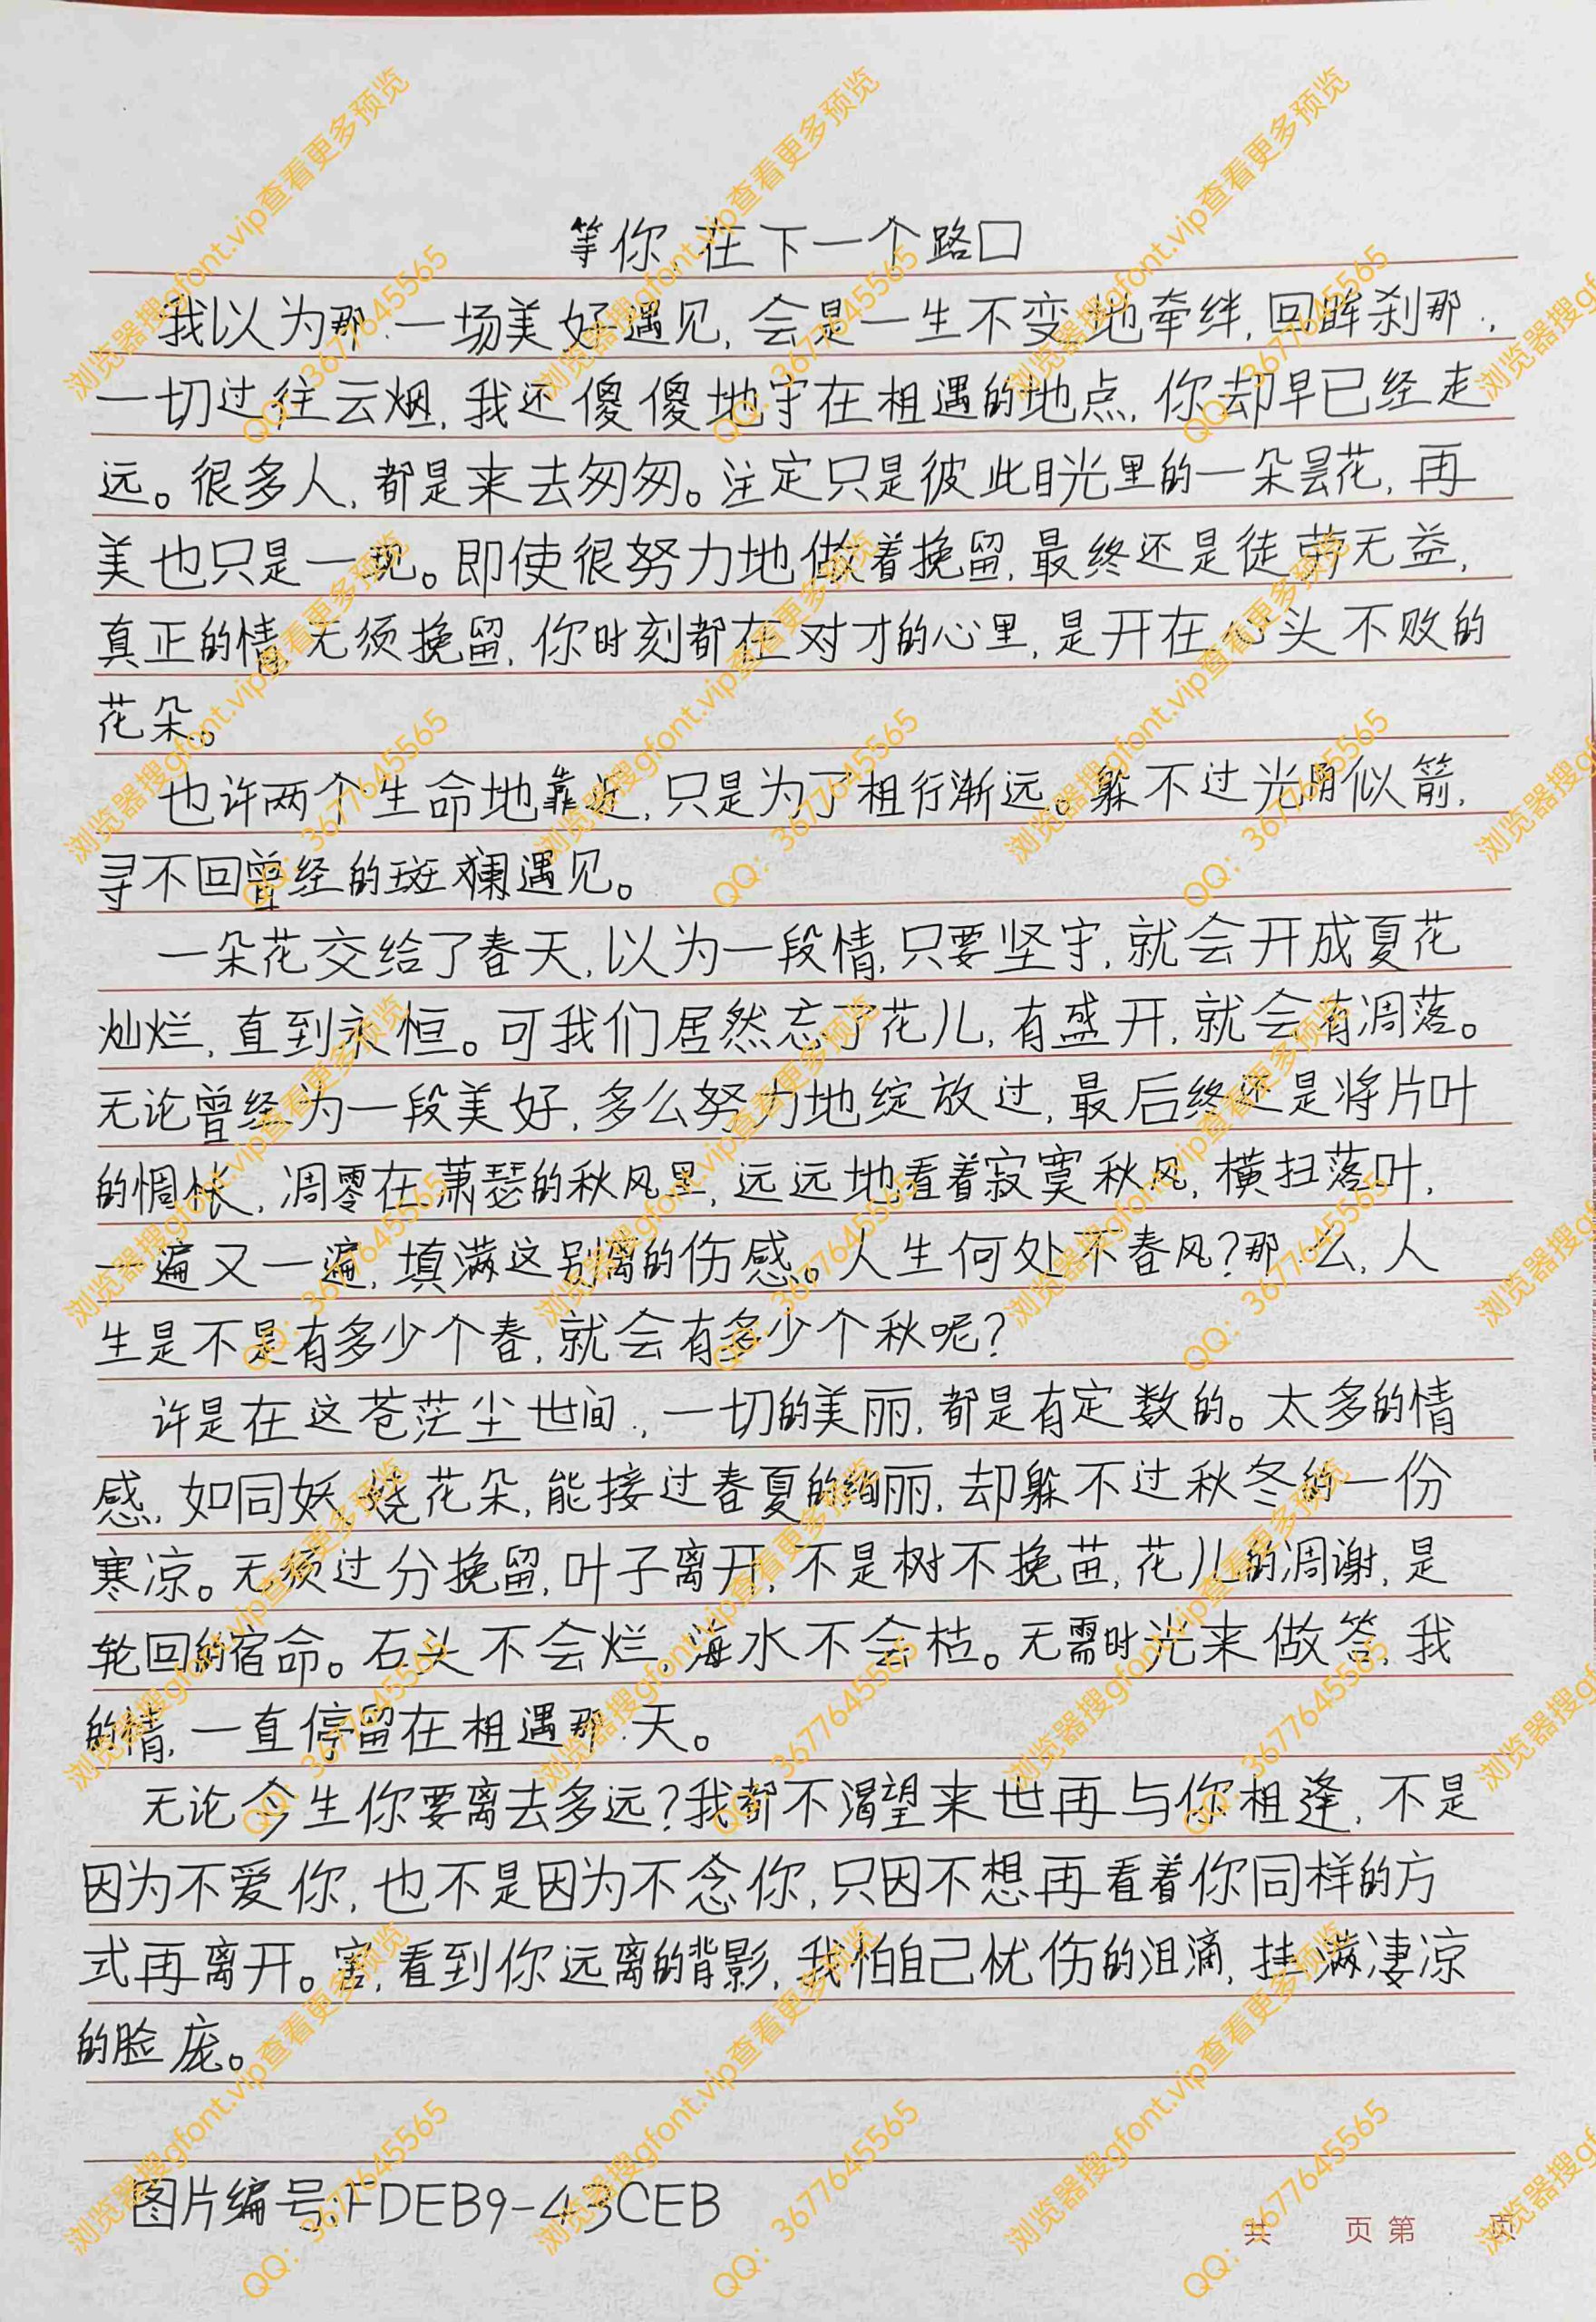 等你,在下一个路口
我以为那,一场美好遇见,会是一生不变地牵绊,回眸刹那,
一切过往云烟,我还傻傻地守在相遇的地点,你却早已经走
远。很多人,都是来去匆匆。注定只是彼此目光里的一朵昙花,再
美也只是一现。即使很努力地做着挽留,最终还是徒劳无益,
真正的情,无须挽留,你时刻都在对才的心里,是开在心头不败的
花朵。
也许两个生命地靠近,只是为了相行渐远。躲不过光阴似箭,
寻不回曾经的斑斓遇见。
一朵花交给了春天,以为一段情,只要坚守,就会开成夏花
灿烂,直到永恒。可我们居然忘了花儿,有盛开,就会有凋落。
无论曾经为一段美好,多么努力地绽放过,最后终还是将片叶
的惆怅,凋零在萧瑟的秋风里,远远地看着寂寞秋风,横扫落叶,
一遍又一遍,填满这别离的伤感。人生何处不春风?那么,人
生是不是有多少个春,就会有多少个秋呢?
许是在这苍茫尘世间,一切的美丽,都是有定数的。太多的情
感,如同妖娆花朵,能接过春夏的绚丽,却躲不过秋冬的一份
寒凉。无须过分挽留,叶子离开,不是树不挽苗,花儿的凋谢,是
轮回的宿命。石头不会烂,海水不会枯。无需时光来做答,我
的情,一直停留在相遇那天。
无论今生你要离去多远?我都不渴望来世再与你相逢,不是
因为不爱你,也不是因为不念你,只因不想再看着你同样的方
式再离开。害,看到你远离的背影,我怕自己忧伤的泪滴,挂满凄凉
的脸庞。
图片编号:FDEB9-43CEB
共 页 第 页
浏览器搜gfont.vip查看更多预览
QQ：3677645565